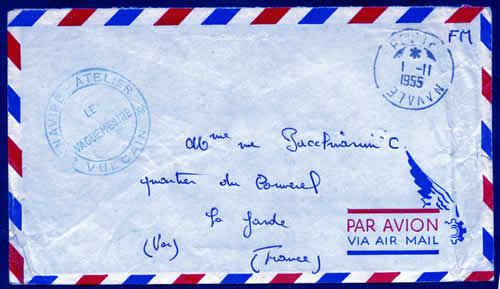 FM
POSTE NAVALE
*
1 -11
1955
NAVIRE-ATELIER
LE
VAGUEMESTRE
VULCAIN
Mme
C.
quartier du
La Garde
(Var) (France)
PAR AVION
VIA AIR MAIL